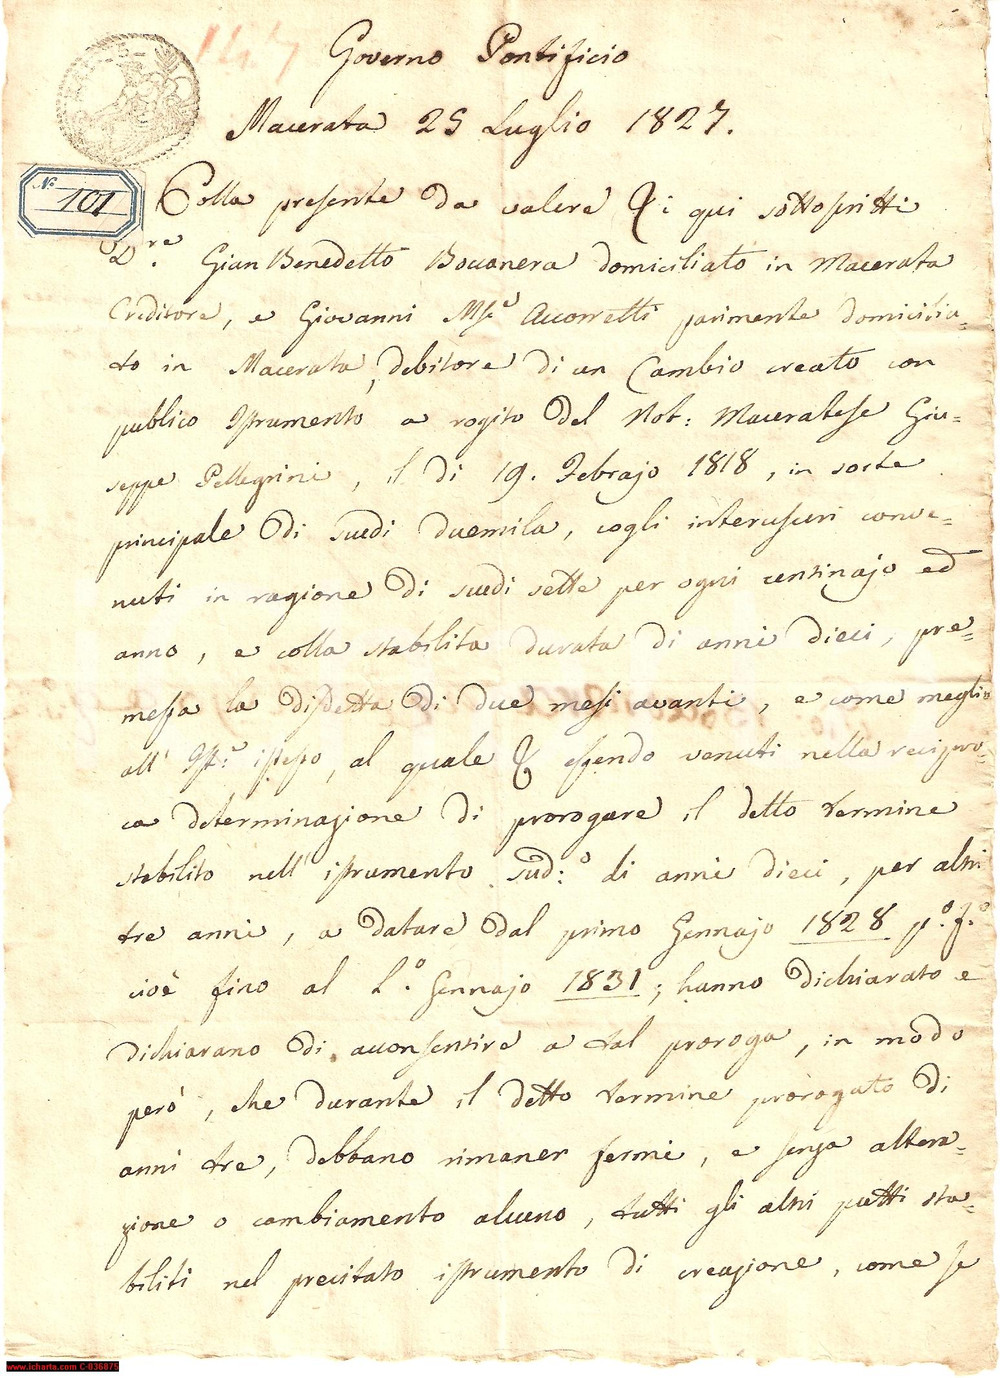 147
Governo Pontificio
Macerata 25 Luglio 1827.
N.° 101
Colla presente da valere & i qui sottoscritti
D.re Gian Benedetto Boccanera domiciliato in Macerata
Creditore, e Giovanni Mse Accorretti parimente domicilia=
to in Macerata, debitore di un Cambio creato con
publico Istrumento a rogito del Not: Maceratese Giu=
seppe Pellegrini, il di 19. Febrajo 1818, in sorte
principale di scudi duemila, cogli interusuri conve=
nuti in ragione di scudi sette per ogni centinajo ed
anno, e colla stabilita durata di anni dieci, pre=
messa la disdetta di due mesi avanti, e come meglio
all' Ist:e istesso, al quale & essendo venuti nella recipro=
ca determinazione di prorogare il detto termine
stabilito nell' istrumento Sud:o di anni dieci, per altri
tre anni, a datare dal primo Gennajo 1828 p.o f.o
cioè fino al 1.o Gennajo 1831; hanno dichiarato e
dichiarano di acconsentire a tal proroga, in modo
però, che durante il detto termine prorogato di
anni tre, debbano rimaner fermi, e senza altera=
zione o cambiamento alcuno, tutti gli altri patti sta=
biliti nel precitato istrumento di creazione, come se
www.icharta.com C-836875